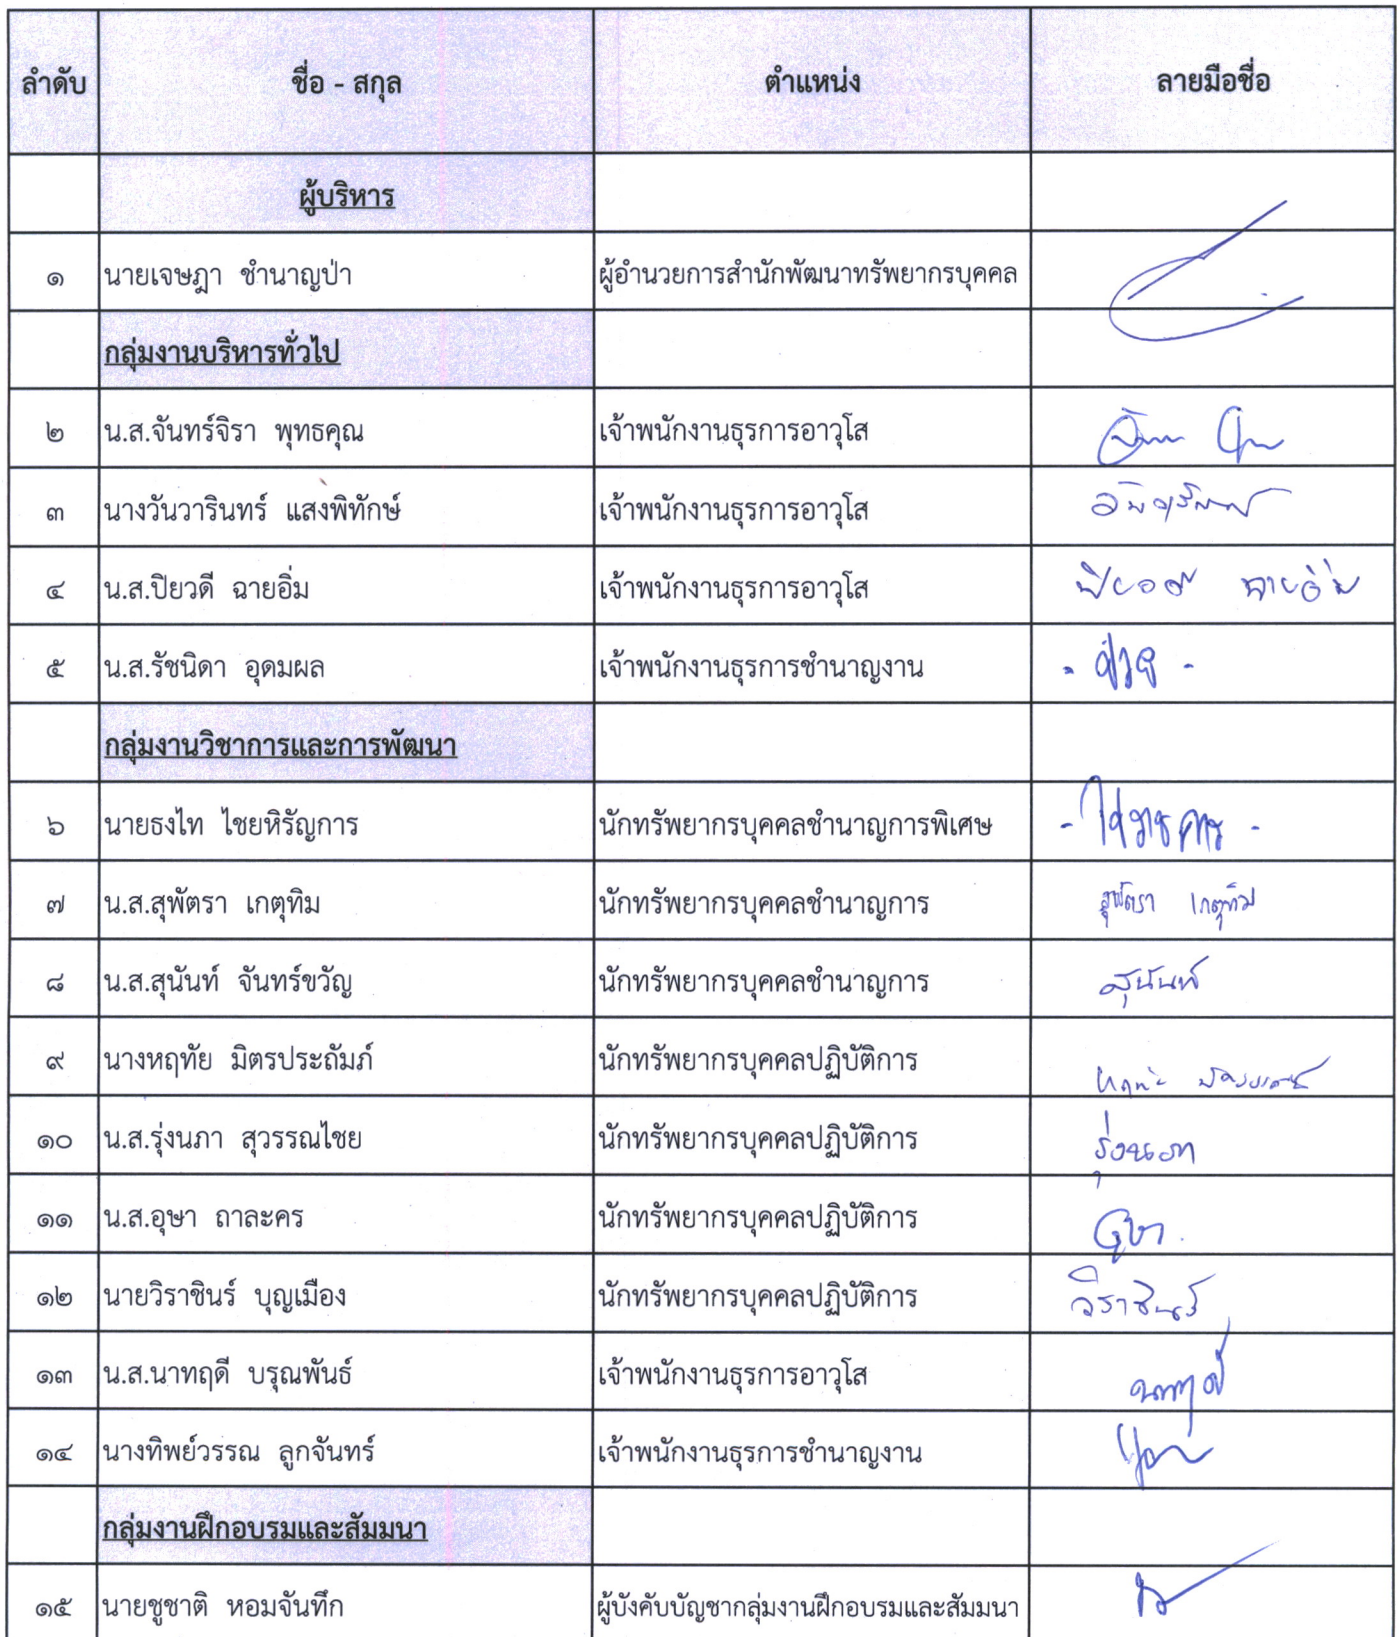 ลำดับ ชื่อ - สกุล ตำแหน่ง ลายมือชื่อ
ผู้บริหาร
๑ นายเจษฎา ชำนาญป่า ผู้อำนวยการสำนักพัฒนาทรัพยากรบุคคล
กลุ่มงานบริหารทั่วไป
๒ น.ส.จันทร์จิรา พุทธคุณ เจ้าพนักงานธุรการอาวุโส
๓ นางวันวารินทร์ แสงพิทักษ์ เจ้าพนักงานธุรการอาวุโส
๔ น.ส.ปิยวดี ฉายอิ่ม เจ้าพนักงานธุรการอาวุโส ปิยวดี ฉายอิ่ม
๕ น.ส.รัชนิดา อุดมผล เจ้าพนักงานธุรการชำนาญงาน - ป่วย -
กลุ่มงานวิชาการและการพัฒนา
๖ นายธงไท ไชยหิรัญการ นักทรัพยากรบุคคลชำนาญการพิเศษ - ไปราชการ -
๗ น.ส.สุพัตรา เกตุทิม นักทรัพยากรบุคคลชำนาญการ สุพัตรา เกตุทิม
๘ น.ส.สุนันท์ จันทร์ขวัญ นักทรัพยากรบุคคลชำนาญการ สุนันท์
๙ นางหฤทัย มิตรประถัมภ์ นักทรัพยากรบุคคลปฏิบัติการ
๑๐ น.ส.รุ่งนภา สุวรรณไชย นักทรัพยากรบุคคลปฏิบัติการ รุ่งนภา
๑๑ น.ส.อุษา ถาละคร นักทรัพยากรบุคคลปฏิบัติการ อุษา
๑๒ นายวิราชินร์ บุญเมือง นักทรัพยากรบุคคลปฏิบัติการ วิราชินร์
๑๓ น.ส.นาทฤดี บรุณพันธ์ เจ้าพนักงานธุรการอาวุโส นาทฤดี
๑๔ นางทิพย์วรรณ ลูกจันทร์ เจ้าพนักงานธุรการชำนาญงาน
กลุ่มงานฝึกอบรมและสัมมนา
๑๕ นายชูชาติ หอมจันทึก ผู้บังคับบัญชากลุ่มงานฝึกอบรมและสัมมนา